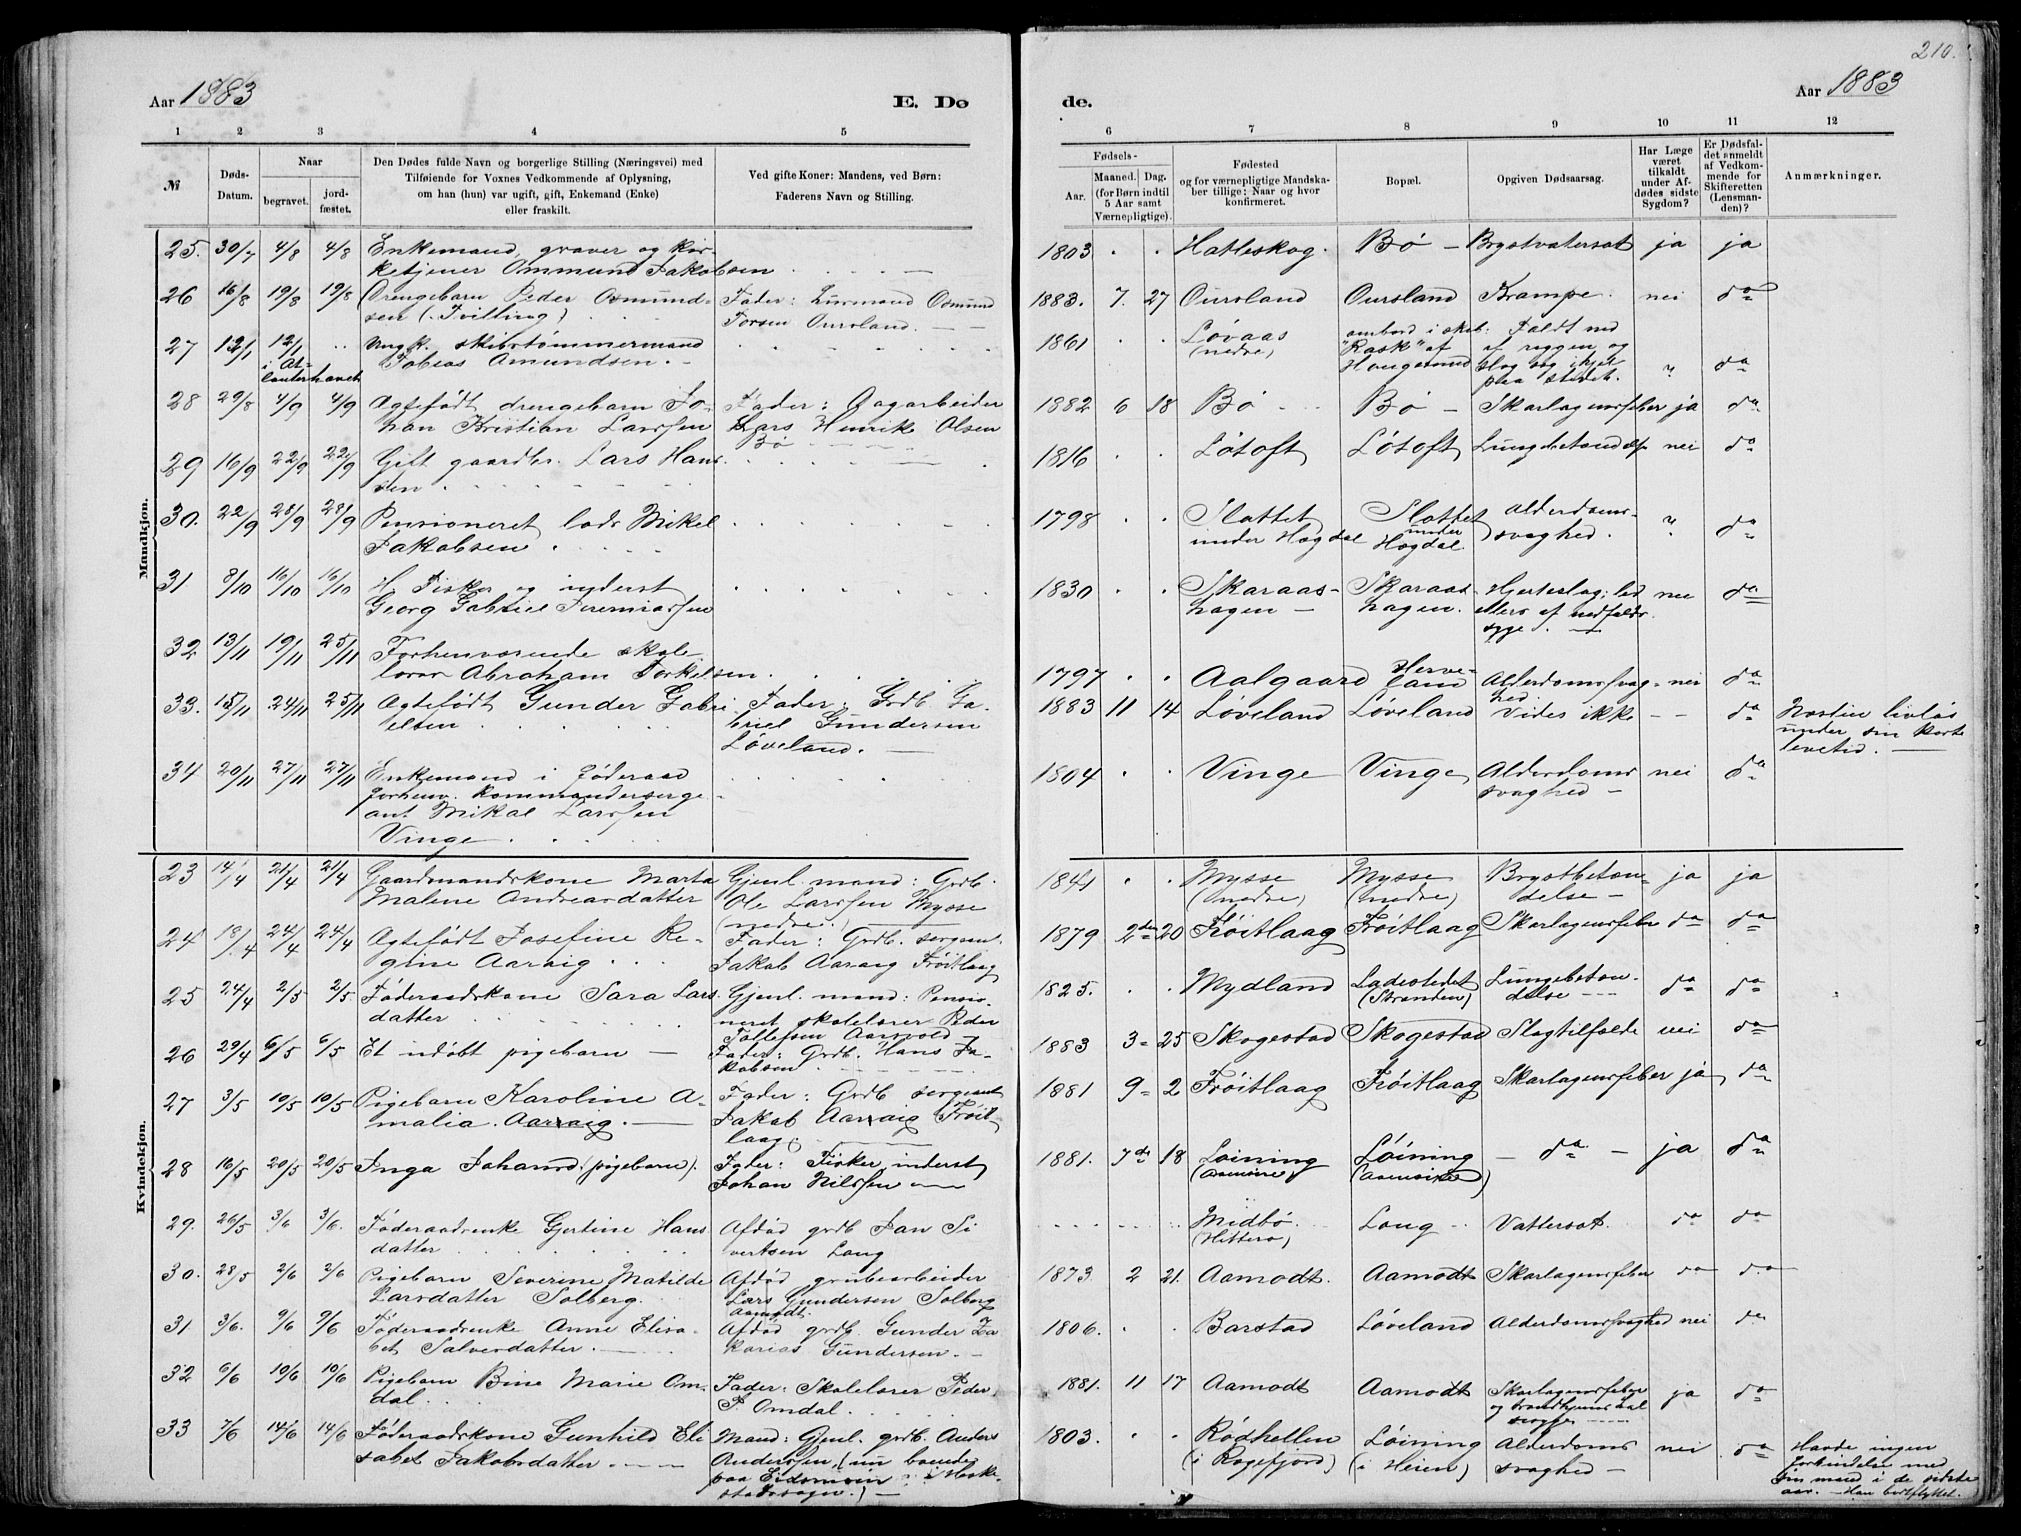 210.
Aar 1883
E. Dø
de.
Aar 1883
1 2 3 4 5 6 7 8 9 10 11 12
№
Døds-
Datum.
Naar
begravet.
jord-
fæstet.
Den Dødes fulde Navn og borgerlige Stilling (Næringsvei) med
Tilføiende for Voxnes Vedkommende af Oplysning,
om han (hun) var ugift, gift, Enkemand (Enke)
eller fraskilt.
Ved gifte Koner: Mandens, ved Børn:
Faderens Navn og Stilling.
Fødsels-
Aar.
Maaned. Dag.
(for Børn indtil
5 Aar samt
Værnepligtige).
Fødested
og for værnepligtige Mandska-
ber tillige: Naar og hvor
konfirmeret.
Bopæl.
Opgiven Dødsaarsag.
Har Læge
været
tilkaldt
under Af-
dødes sidste
Sygdom?
Er Dødsfal-
det anmeldt
af Vedkom-
mende for
Skifteretten
(Lensman-
den)?
Anmærkninger.
Mandkjøn.
25. 30/7 4/8 4/8 Enkemand, graver og kir-
ketjener Ommund Jakobsen
1803 Hatleskog. Bø - Brystvatersot ja ja
26 16/8 19/8 19/8 Drengebarn Peder Osmund-
sen (Tvilling)
Fader: Osmund
Torsen Oursland.
1883. 7. 27 Oursland Oursland Krampe. nei do
27 12/1 12/1
i At-
lanterhavet
Ungk. skibstømmermand
Tobias Amundsen.
1861 Løvaas
(nedre)
ombord i skib:
"Rask" af
Haugesund
Faldt ned
af riggen og
slog sig ihjel
paa stedet.
" do
28 29/8 4/9 4/9 Ægtefødt drengebarn Jo-
han Kristian Larssen
Fader: Dagarbeider
Lars Henrik Olsen
Bø
1882 6 18 Bø Bø - Skarlagensfeber ja do
29 16/9 22/9 22/9 Gift gaardbr. Lars Han-
sen
1816 Løtoft Løtoft Lungebetændelse nei do
30. 22/9 28/9 28/9 Pensioneret lods Mikel
Jakobsen
1798 Slottet
under Hogdal
Slottet
under
Hogdal.
Alderdoms-
svaghed.
" do
31 8/10 16/10 16/10 Fisker og inderst
Georg Gabriel Jeremiassen
1830 Skaraas-
hagen -
Skaraas-
hagen.
Hjerteslag; led
ellers af nedfalds-
syge.
nei do
32 13/11 19/11 25/11 Forhenværende skole-
lærer Abraham Torkelsen
1797 Aalgaard Herve-
land
Alderdomssvag-
hed
nei do
33. 15/11 24/11 25/11 Ægtefødt Gunder Gabri-
elsen
Fader: Grdb. Ga-
briel Gundersen
Løveland.
1883 11 14 Løveland Løveland Vides ikke - - do
Næsten livløs
under sin korte
levetid.
34 20/11 27/11 27/11 Enkemand i føderaad
forhenv. kommandersergе-
ant Mikal Larssen
Vinge
1804 Vinge Vinge Alderdoms-
svaghed -
nei do
Kvindekjøn.
23 14/4 21/4 21/4 Gaardmandskone Marta
Malene Andreasdatter
Gjenl. mand: Grdb.
Ole Larssen Mysse
(nedre).
1841 Mysse
(nedre)
Mysse
(nedre)
Brystbetæn-
delse -
ja ja
24 18/4 24/4 24/4 Ægtefødt Josefine Re-
gine Aarsig
Fader: Grdb. sergeant
Jakob Aarsig Frøitlaag
1879 2den 20 Frøitlaag Frøitlaag Skarlagensfeber do do
25 24/4 2/5 2/5 Føderaadskone Sara Lars-
datter
Gjenl. mand: Pensio-
neret skolelærer Peder
Tollefsen Aarsvold
1825. Mydland Ladestedet
(Stranden)
Lungebetæn-
delse
do do
26 29/4 6/5 6/5 Et udøbt pigebarn -
Fader: Grdb. Hans Ja-
kobsen.
1883 3 25 Skogestad Skogestad Slagtilfælde nei do
27 3/5 10/5 10/5 Pigebarn Karoline A-
malia Aarsig.
Fader: Grdb sergeant
Jakob Aarsig Frøit-
laag.
1881 9 2 Frøitlaag Frøitlaag Skarlagensfeber ja do
28 16/5 20/5 20/5 Inga Johansd. (pigebarn).
Fader: Fisker, inderst
Johan Nilssen
1881. 7de 18 Løining Løining
- do - ja do
29. 26/5 3/6 3/6. Føderaadsenke Gjertine Hans-
datter
Afdød grdb Jan Si-
vertsen Laug
Midbø.
(Hitterø)
Laug Vattersot. do do
30. 28/5 2/6 2/6 Pigebarn Severine Matilde
Larsdatter Solberg.
Afdød grubearbeider
Lars Gundersen Solberg
Aamodt.
1873 2 21. Aamodt. Aamodt Skarlagensfeber do do
31 3/6. 9/6 9/6 Føderaadsenke Anne Elisa-
bet Salvesdatter.
Afdød grdb. Gunder Za-
karias Gundersen.
1806. Barstad Løveland Alderdomssvaghed nei do
32 6/6 10/6 10/6 Pigebarn Bine Marie Om-
dal.
Fader: Skolelærer Peder
P. Omdal.
1881. 11 17 Aamodt Aamodt Skarlagensfeber
og
ja do
33 7/6 14/6 14/6 Føderaadskone Gunhild Eli-
sabet Jakobsdatter.
Mand: Gjenl. grdb. Anders
Anderssen, (nu boende
paa Eidsmoen i Heske-
stadsogn.)
1803. Rødhellen
(i Rægefjord)
Løining
(i Heien)
Alderdoms-
svaghed -
nei do
Havde ingen
forbindelse med
sin mand i de sidste
aar. - Han bortflyttet.